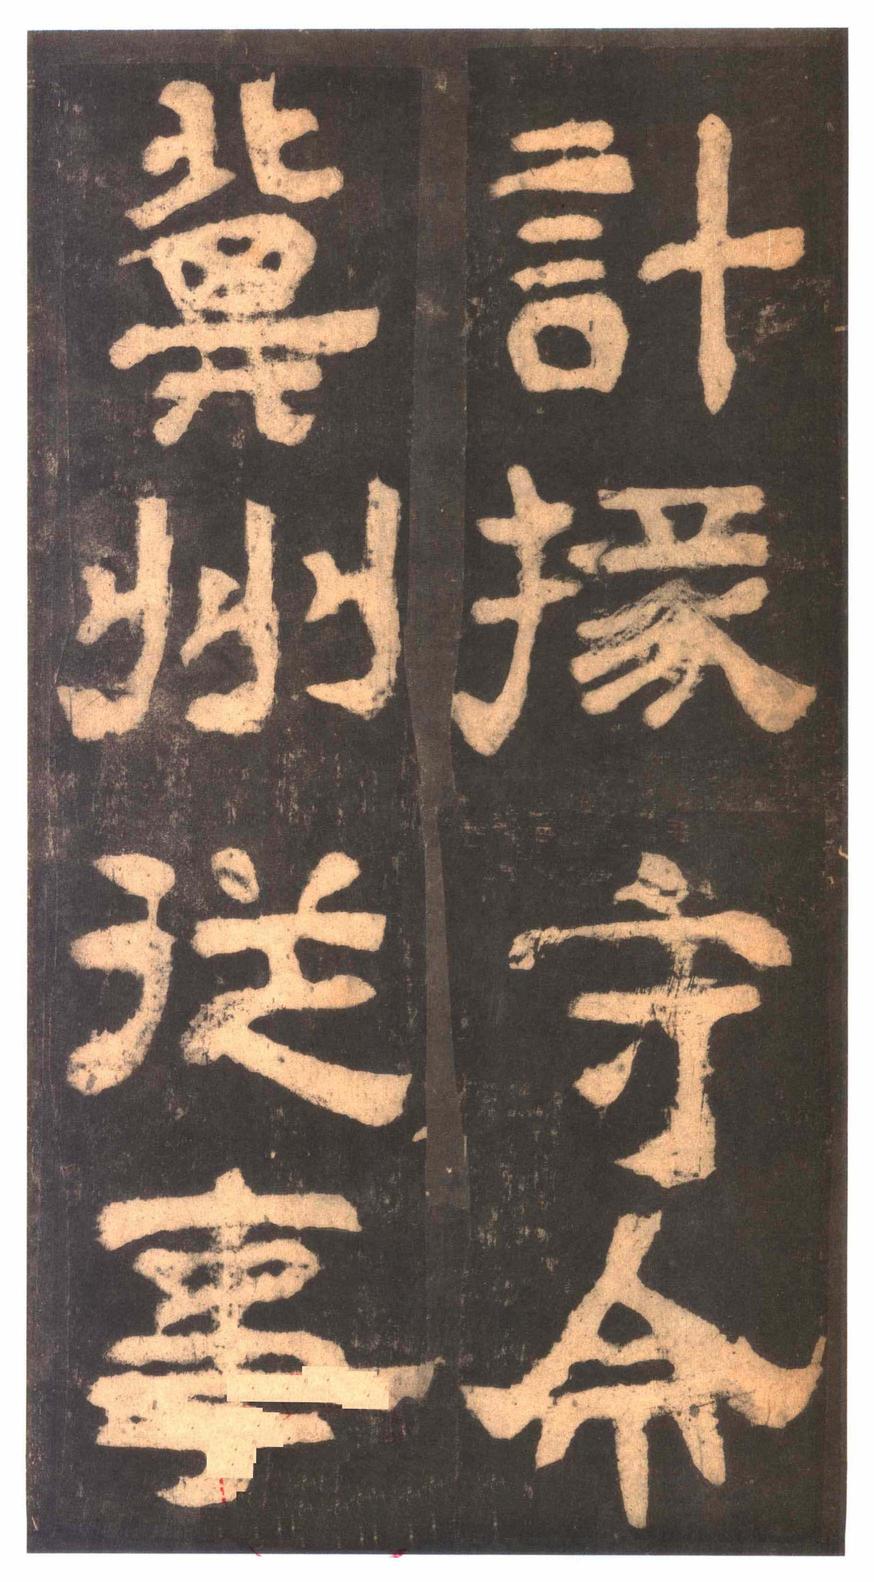 計掾守令
冀州從事